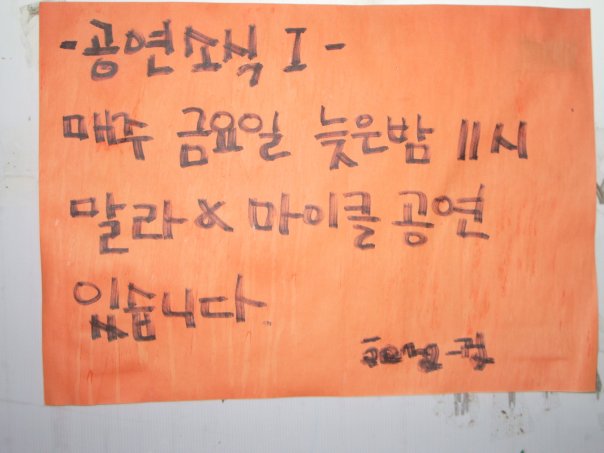 -공연소식 I-
매주 금요일 늦은밤 11시
말라 & 마이클 공연
있습니다.